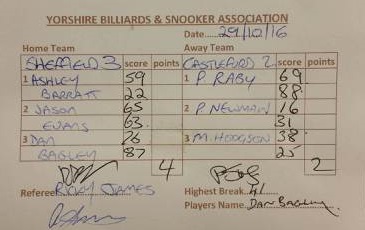 YORSHIRE BILLIARDS & SNOOKER ASSOCIATION
Date 29/10/16
Home Team Away Team
SHEFFIELD 3 score points CASTLEFORD 2 score points
1 ASHLEY 59 1 P. RABY 69
BARRATT 22 88
2 JASON 65 2 P. NEWMAN 16
EVANS 63 31
3 DAN 26 3 M. HODGSON 38
BAGLEY 87 25
4 2
Referee RICKY JAMES Highest Break 41
Players Name DAN BAGLEY